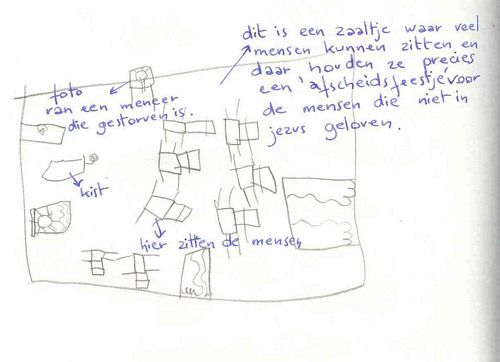 dit is een zaaltje waar veel
mensen kunnen zitten en
daar houden ze precies
een 'afscheidsfeestje' voor
de mensen die niet in
jezus geloven.
foto
van een meneer
die gestorven is.
kist
hier zitten de mensen